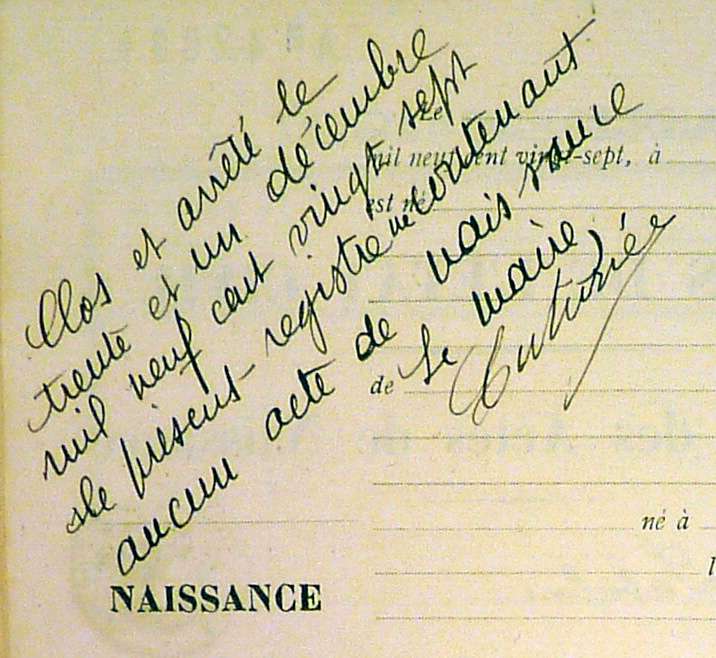 Clos et arrêté le
trente et un décembre
mil neuf cent vingt sept
le présent registre ne contenant
aucun acte de naissance
Le maire,
Le
mil neuf cent vingt-sept, à
est né
de
né à
NAISSANCE